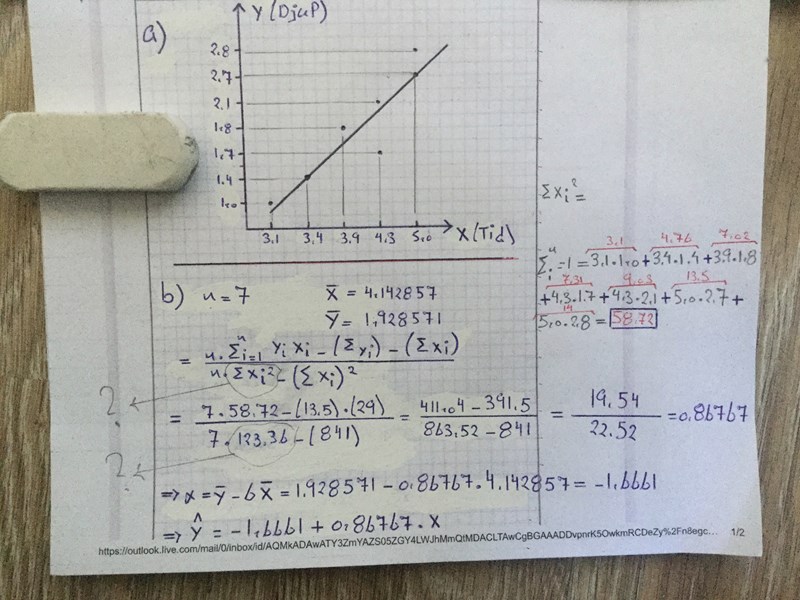 a)
Y (Djup)
2.8
2.7
2.1
1.8
1.7
1.4
1.0
3.1 3.4 3.9 4.3 5.0 X (Tid)
b) n = 7
X̄ = 4.142857
Ȳ = 1.928571
= n · Σⁿi=1 yi xi − (Σyi) − (Σxi) / n · Σxi² − (Σxi)²
?
= 7 · 58.72 − (13.5) · (29) / 7 · 123.36 − (841) = 411.04 − 391.5 / 863.52 − 841 = 19.54 / 22.52 = 0.86767
?
⇒ α = Ȳ − b X̄ = 1.928571 − 0.86767 · 4.142857 = −1.6661
⇒ Ŷ = −1.6661 + 0.86767 · X
Σxi² =
3.1 4.76 7.02
Σⁿi −1 = 3.1·1.0 + 3.4·1.4 + 3.9·1.8
7.31 9.03 13.5
+ 4.3·1.7 + 4.3·2.1 + 5.0·2.7 +
14
5.0·2.8 = 58.72
https://outlook.live.com/mail/0/inbox/id/AQMkADAwATY3ZmYAZS05ZGY4LWJhMmQtMDACLTAwCgBGAAADDvpnrK5OwkmRCDeZy%2Fn8egc... 1/2